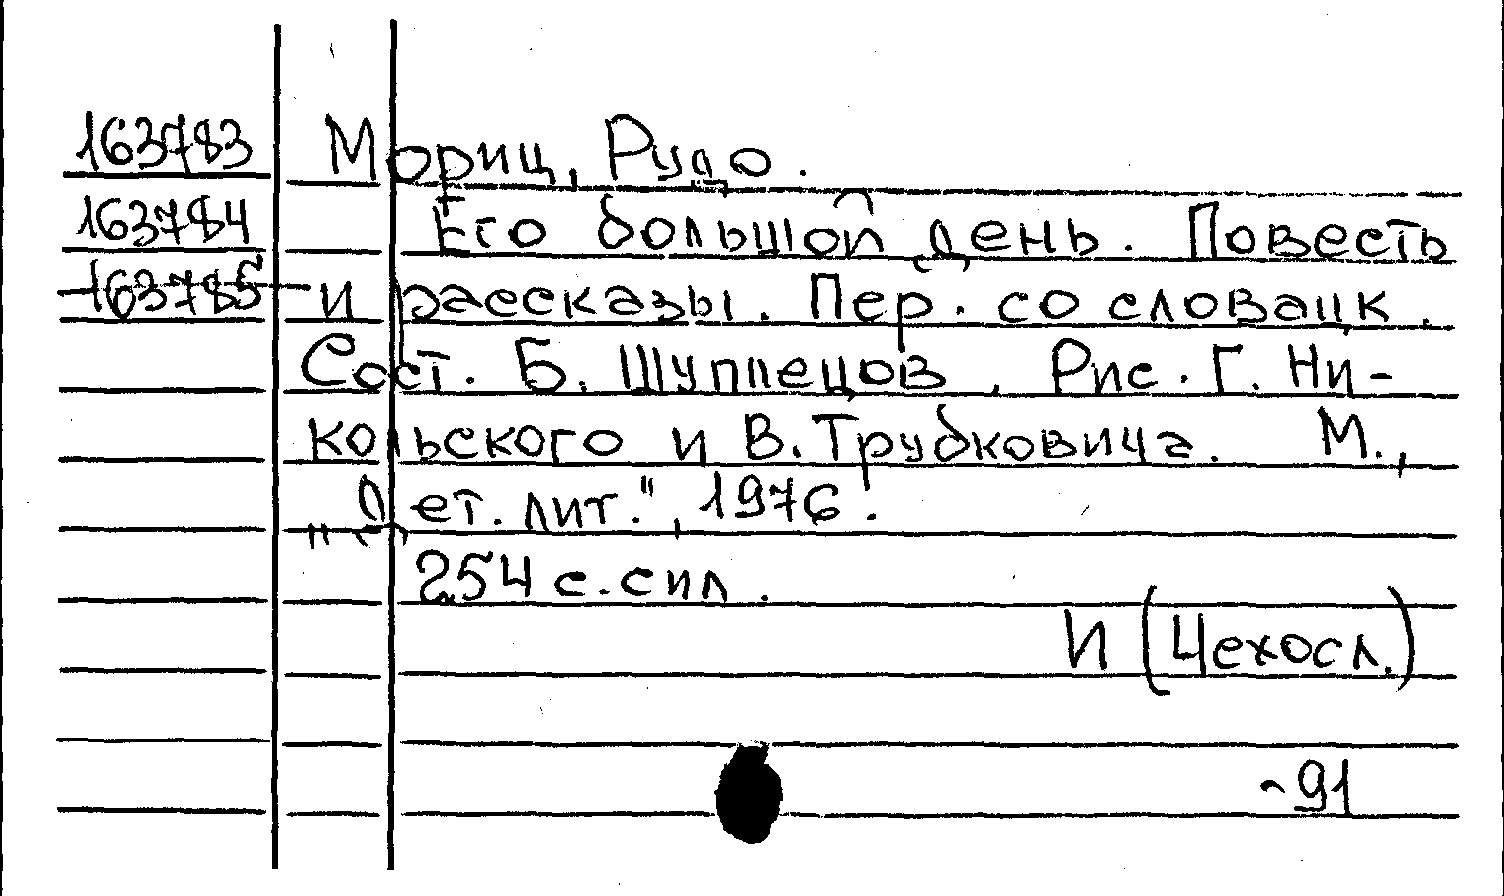 163783 Мориц, Рудо.
163784 Его большой день. Повесть
163785 и рассказы. Пер. со словацк.
Сост. Б. Шуплецов. Рис. Г. Ни-
кольского и В. Трубковича. М.,
„Дет. лит.", 1976.
254 с. с ил.
И (Чехосл.)
~91